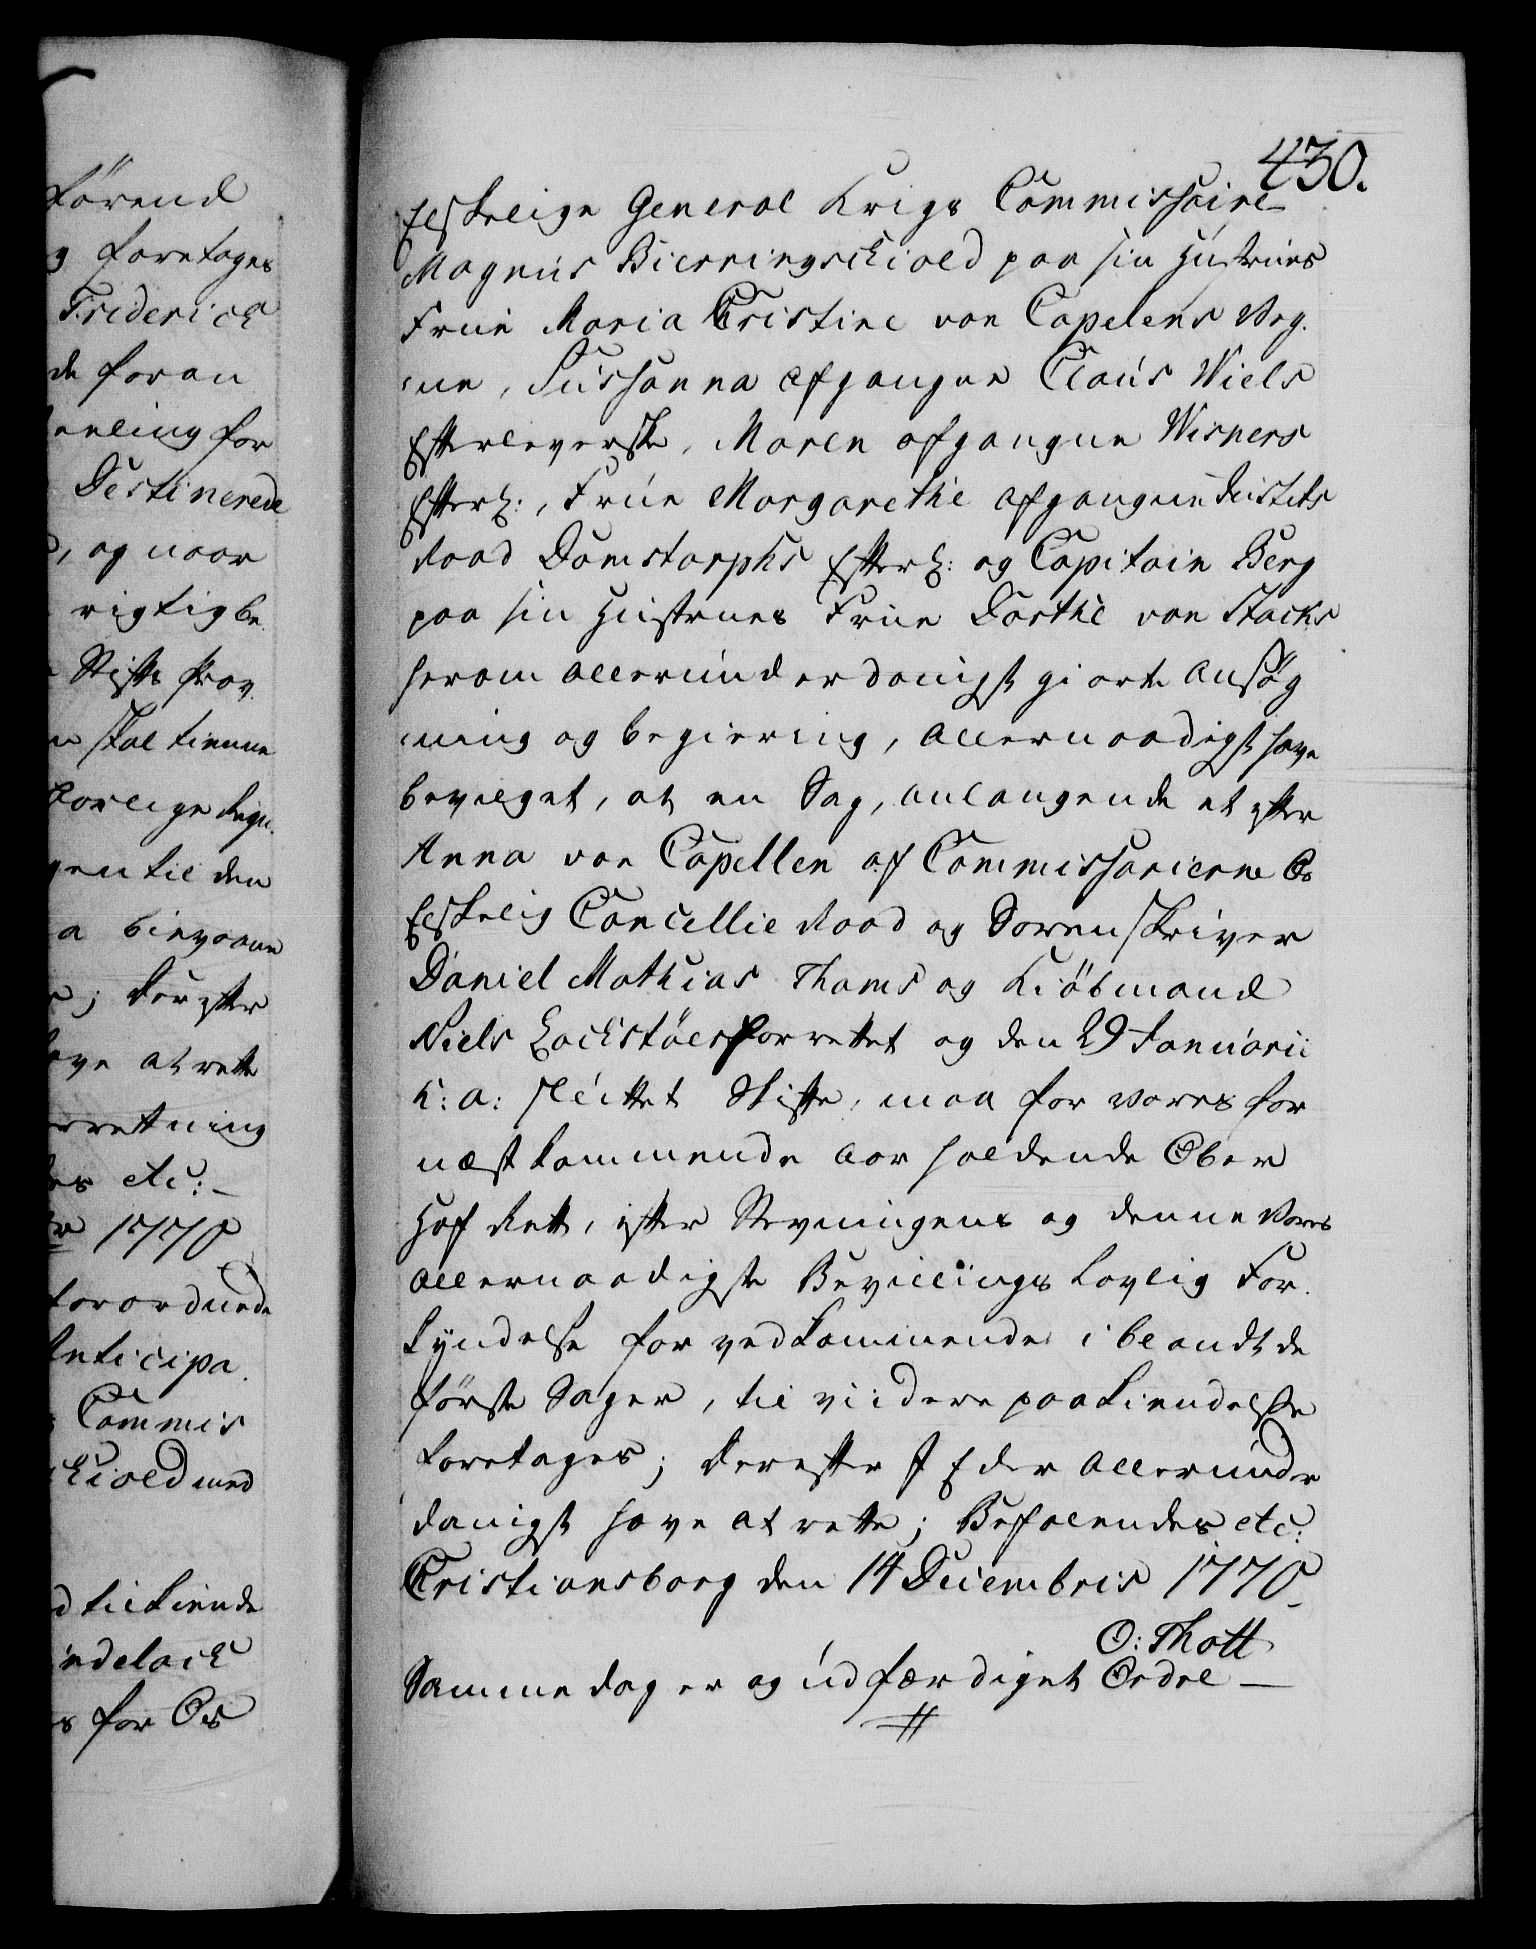 førend
g foretages
Friderich
de foran
Destinerede
, og naar
rigtig be
Stifts Prov.
n skal tienne
gen til den
a bievaane
; derefter
have at rette
rretning
es etc:
1770
forordnede
Anticipa
Commis
skiold med
d til kiende
indelack
s for Os
430.
Elskelige General Krigs Commissaire
Magnus Bierringschiold paa sin Hustrues
Frue Maria Cristine von Capelens Veg-
ne, Sussanna afgangne Claus Wiels
Efterleverske, Maren afgangne Wisners
Efterl:, Frue Margarethe afgangne Justits
Raad Domstorphs Efterl: og Capitain Berg
paa sin Hustrues Frue Dorthe von Stacks
herom allerunderdanigst giorte Ansøg
ning og begiering, allernaadigst have
bevilget, at en Sag, anlangende et efter
Anna von Capellen af Commissarierne Os
Elskelig Cancellie Raad og Sorenskriver
Daniel Mathias Thams og Kiøbmand
Niels Lochstøer forrettet og den 29 Januarii
h: a: sluttet Skifte, maa for vores for
næstkommende Aar holdende Ober
Hof Rett, efter Stevningens og denne Vores
allernaadigste Bevillings Lovlig For-
kyndelse for vedkommende iblandt de
første Sager, til viidere paakiendelse
foretages; derefter I Eder allerunder
danigst have at rette; Befalendes etc:
Cristiansborg den 14 Decembris 1770
O: Thott
Samme dag er og udfærdiget Ordre